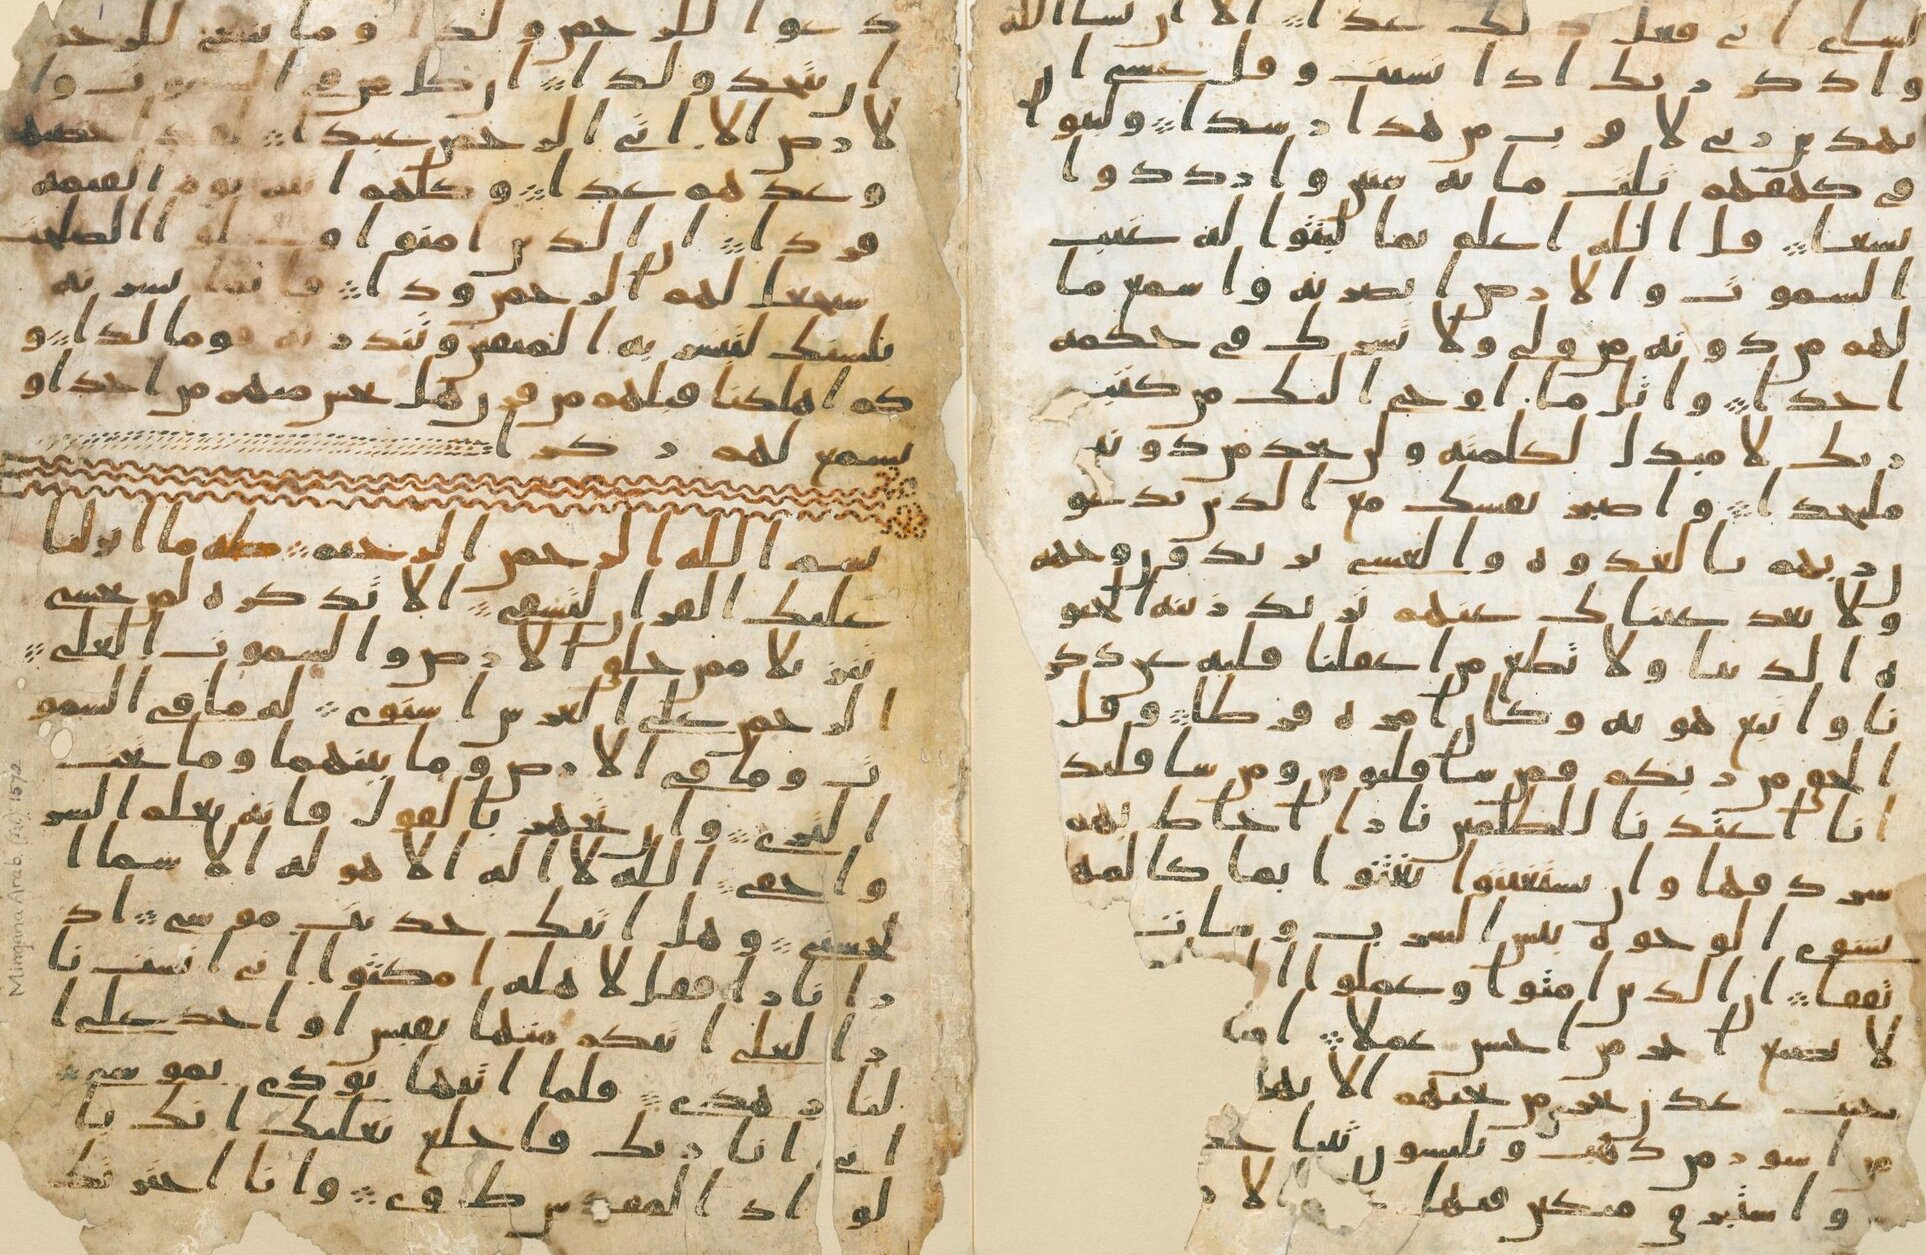 لشاي اني فعل ذلك غدا الا ان يشا الله
واذكر ربك اذا نسيت وقل عسى ان
يهدين ربي لاقرب من هذا رشدا ولبثوا
في كهفهم ثلث مايه سنين وازددوا
تسعا قل الله اعلم بما لبثوا له غيب
السموت والارض ابصر به واسمع ما
لهم من دونه من ولي ولا تشرك في حكمه
احدا واتل ما اوحي اليك من كتب
ربك لا مبدل لكلمته ولن تجد من دونه
ملتحدا واصبر نفسك مع الذين يدعو
ن ربهم بالغدوه والعشي يريدون وجهه
ولا تعد عيناك عنهم تريد زينه الحيو
ه الدنيا ولا تطع من اغفلنا قلبه عن ذكر
نا واتبع هويه وكان امره فرطا وقل
الحق من ربكم فمن شا فليومن ومن شا فليكفر
انا اعتدنا للظلمين نارا احاط بهم
سردقها وان يستغيثوا يغثوا بما كالمهل
يشوي الوجوه بيس الشرب وسات
تفقا ان الذين امنوا وعملوا
لا نضيع اجر من احسن عملا
جنت عدن تجري من تحتهم الانها
من اسور من ذهب ويلبسون ثيابا خضر
واستبرق متكين فيها
دعوا للرحمن ولدا وما ينبغي للرحمن
ان يتخذ ولدا ان كل من في السموت وا
لارض الا اتي الرحمن عبدا لقد احصيهم
وعدهم عدا وكلهم اتيه يوم القيمه
فردا ان الذين امنوا وعملوا الصلحت
سيجعل لهم الرحمن ودا فانما يسرنه
بلسنك لتبشر به المتقين وتنذر به قوما لدا و
كم اهلكنا قبلهم من قرن هل تحس منهم من احد او
تسمع لهم ركزا
بسم الله الرحمن الرحيم طه ما انزلنا
عليك القران لتشقى الا تذكره لمن يخشى
تنزيلا ممن خلق الارض والسموت العلى
الرحمن على العرش استوى له ما في السمو
ت وما في الارض وما بينهما وما تحت
الثرى وان تجهر بالقول فانه يعلم السر
واخفى الله لا اله الا هو له الاسما ا
لحسنى وهل اتيك حديث موسى اذ
را نارا فقل لاهله امكثوا اني انست نا
را لعلي اتيكم منها بقبس او اجد على ا
لنار هدى فلما اتيها نودي يموسى
اني انا ربك فاخلع نعليك انك با
لواد المقدس طوى وانا اخترتك
Mingana Arab. (Isl) 1572